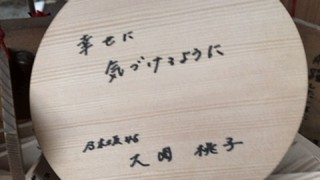 幸せに
気づけるように
乃木坂46
大園 桃子